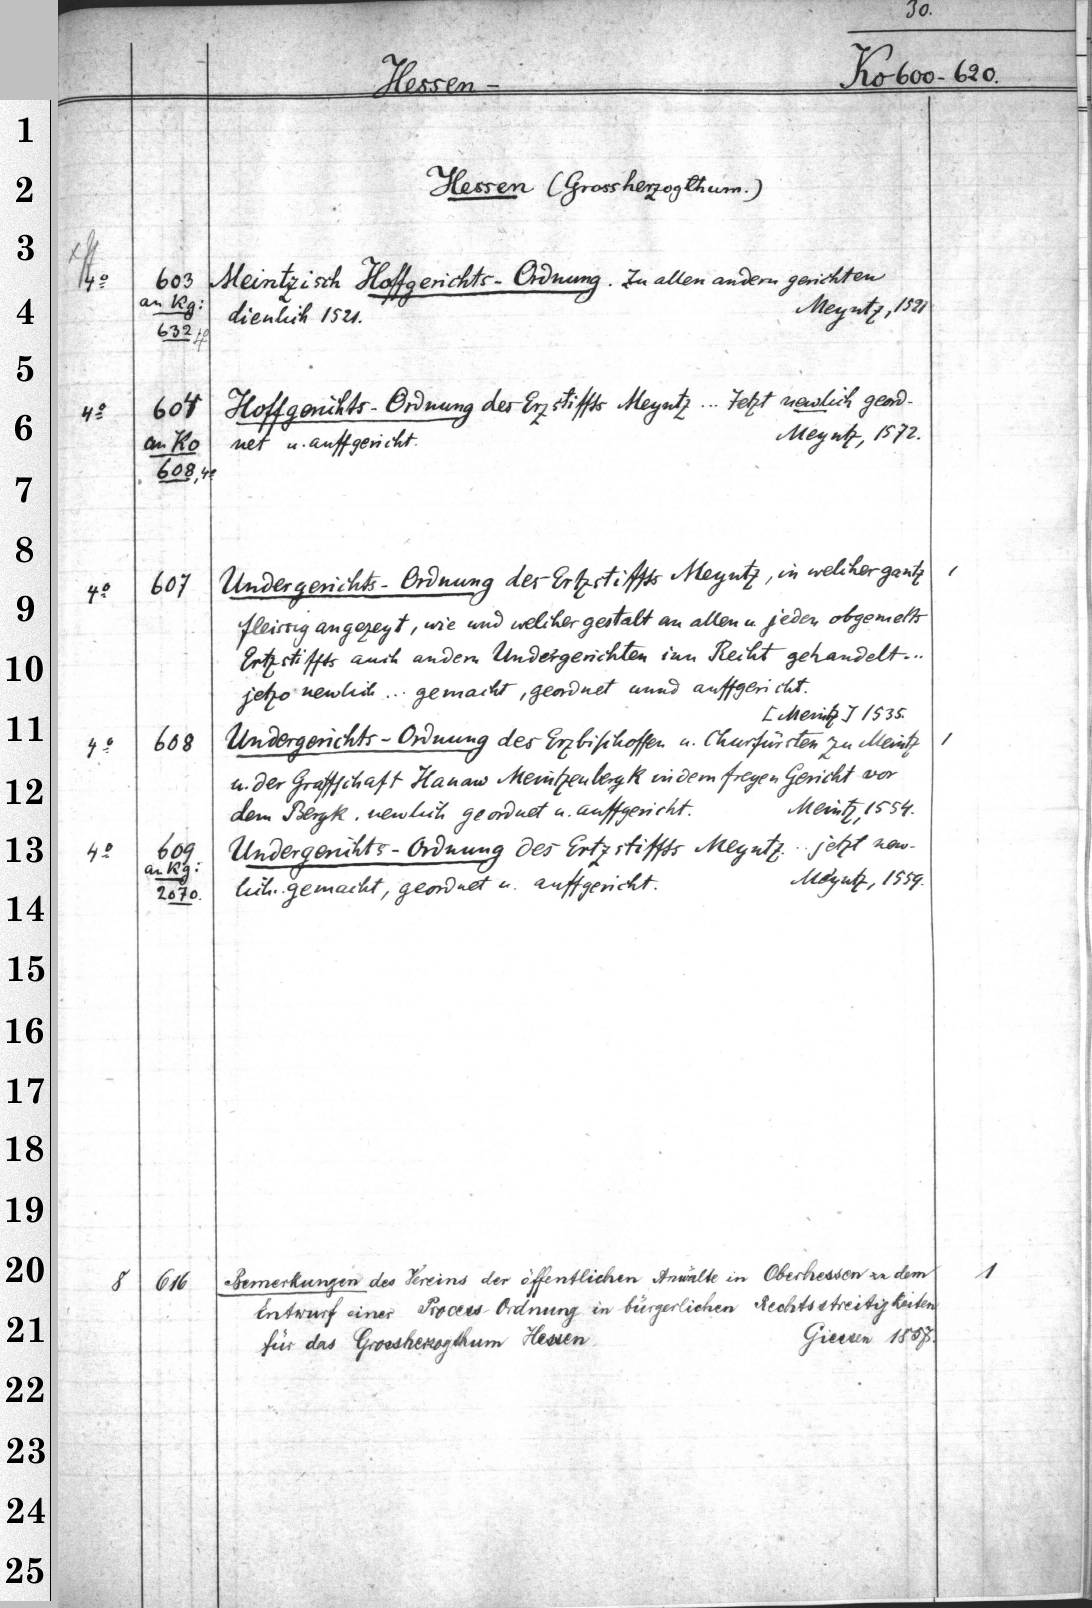 30.
Hessen - Ko 600-620.
Hessen (Grossherzogthum.)
4° 603 Meintzisch Hoffgerichts-Ordnung. Zu allen andern gerichten
an Kg: dienlich 1521. Meyntz, 1521
632
4° 604 Hoffgerichts-Ordnung des Erzstiffts Meyntz ... Jetzt newlich geord-
an Ko net u. auffgericht. Meyntz, 1572.
608, 4°
4° 607 Undergerichts-Ordnung des Ertzstiffts Meyntz, in welcher gantz 1
fleissig angezeyt, wie und welicher gestalt an allen u. jeden obgemelts
Ertzstiffts auch andern Undergerichten inn Recht gehandelt...
jetzo newlich ... gemacht, geordnet unnd auffgericht.
[Meintz] 1535.
4° 608 Undergerichts-Ordnung des Erzbischoffen u. Churfürsten zu Meintz 1
u. der Graffschaft Hanaw Meintzenbergk in dem freyen Gericht vor
dem Bergk. newlich geordnet u. auffgericht. Meintz, 1554.
4° 609 Undergerichts-Ordnung des Ertzstiffts Meyntz .. jetzt new-
an Kg: lich.. gemacht, geordnet u. auffgericht. Meyntz, 1559.
2070.
8 616 Bemerkungen des Vereins der öffentlichen Anwälte in Oberhessen zu dem 1
Entwurf einer Process-Ordnung in bürgerlichen Rechtsstreitigkeiten
für das Grossherzogthum Hessen. Giessen 1857.
1
2
3
4
5
6
7
8
9
10
11
12
13
14
15
16
17
18
19
20
21
22
23
24
25